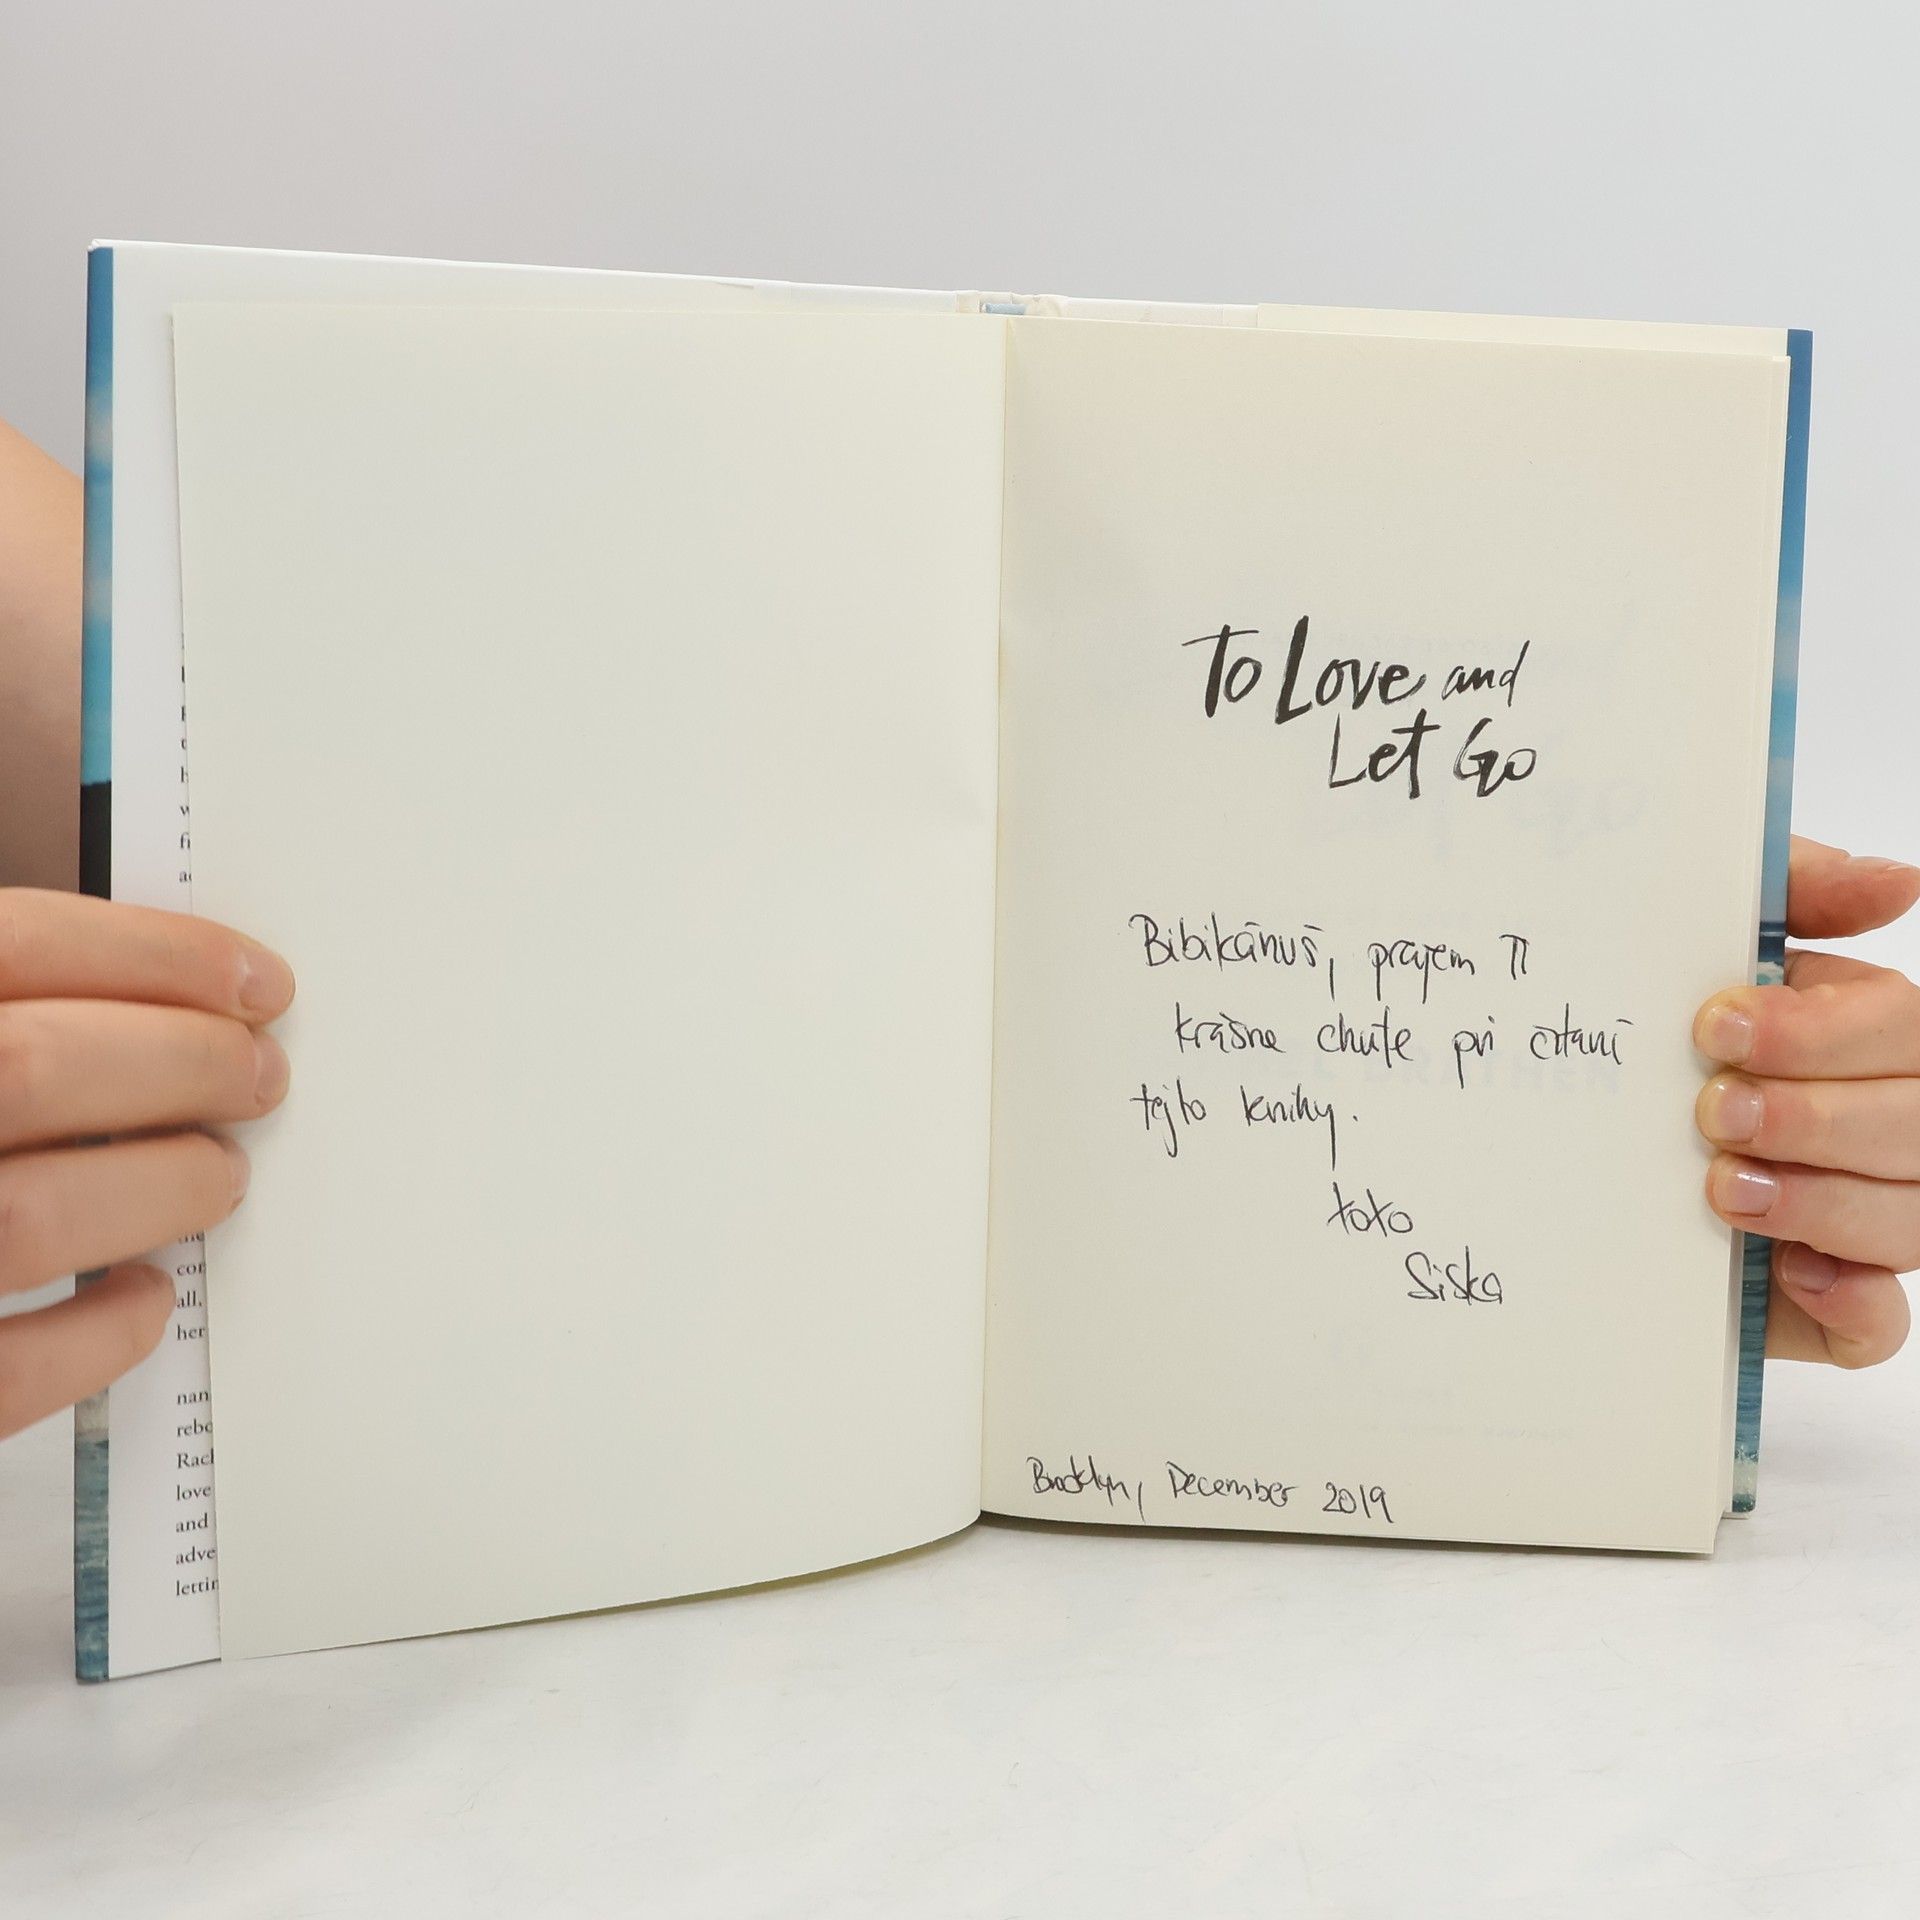 cor
all,
her
nan
rebo
Rach
love
and
adve
lettin
To Love and
Let Go
Bibikánuš, prajem Ti
krásne chute pri čítaní
tejto knihy.
xoxo
Siska
Brooklyn, December 2019